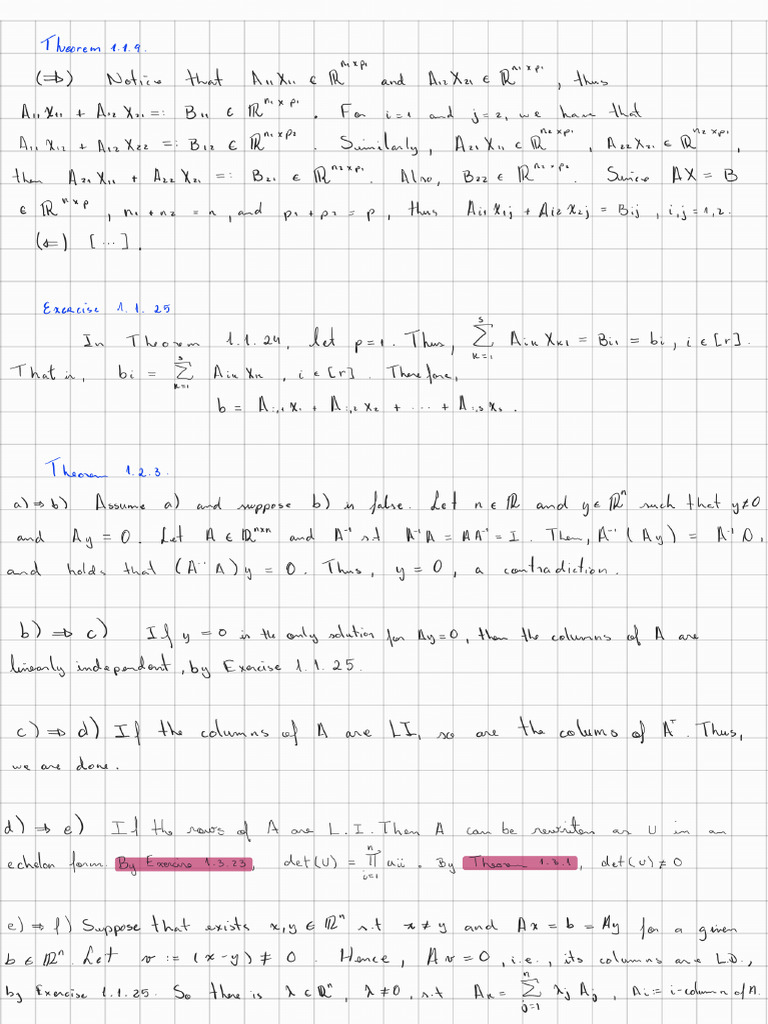 Theorem 1.1.9.
(⇒) Notice that A₁₁X₁₁ ∈ ℝ^{n₁×p₁} and A₁₂X₂₁ ∈ ℝ^{n₁×p₁}, thus
A₁₁X₁₁ + A₁₂X₂₁ =: B₁₁ ∈ ℝ^{n₁×p₁}. For i=1 and j=2, we have that
A₁₁X₁₂ + A₁₂X₂₂ =: B₁₂ ∈ ℝ^{n₁×p₂}. Similarly, A₂₁X₁₁ ∈ ℝ^{n₂×p₁}, A₂₂X₂₁ ∈ ℝ^{n₂×p₁},
then A₂₁X₁₁ + A₂₂X₂₁ =: B₂₁ ∈ ℝ^{n₂×p₁}. Also, B₂₂ ∈ ℝ^{n₂×p₂}. Since AX = B
∈ ℝ^{n×p}, n₁+n₂ = n, and p₁+p₂ = p, thus A_{i1}X_{1j} + A_{i2}X_{2j} = B_{ij}, i,j=1,2.
(⇐) [...].
Exercise 1.1.25
In Theorem 1.1.24, let p=1. Thus, ∑_{k=1}^{s} A_{ik}X_{k1} = B_{i1} = b_i, i ∈ [r].
That is, b_i = ∑_{k=1}^{s} A_{ik}X_k, i ∈ [r]. Therefore,
b = A_{:,1}x₁ + A_{:,2}x₂ + ... + A_{:,s}x_s.
Theorem 1.2.3.
a)⇒b) Assume a) and suppose b) is false. Let n ∈ ℝ and y ∈ ℝⁿ such that y≠0
and Ay = 0. Let A ∈ ℝ^{n×n} and A⁻¹ s.t A⁻¹A = AA⁻¹ = I. Then, A⁻¹(Ay) = A⁻¹0,
and holds that (A⁻¹A)y = 0. Thus, y = 0, a contradiction.
b)⇒c) If y=0 is the only solution for Ay=0, then the columns of A are
linearly independent, by Exercise 1.1.25.
c)⇒d) If the columns of A are LI, so are the colums of Aᵀ. Thus,
we are done.
d)⇒e) If the rows of A are L.I. Then A can be rewriten as U in an
echelon form. By Exercise 1.3.23, det(U) = ∏_{i=1}^{n} a_{ii}. By Theorem 1.3.1, det(U)≠0
e)⇒f) Suppose that exists x,y ∈ ℝⁿ s.t x≠y and Ax = b = Ay for a given
b ∈ ℝⁿ. Let v := (x-y) ≠ 0. Hence, Av=0, i.e., its columns are L.D.,
by Exercise 1.1.25. So there is λ ∈ ℝⁿ, λ≠0, s.t A_k = ∑_{j=1}^{n} λ_j A_j, A_i := i-column of A.